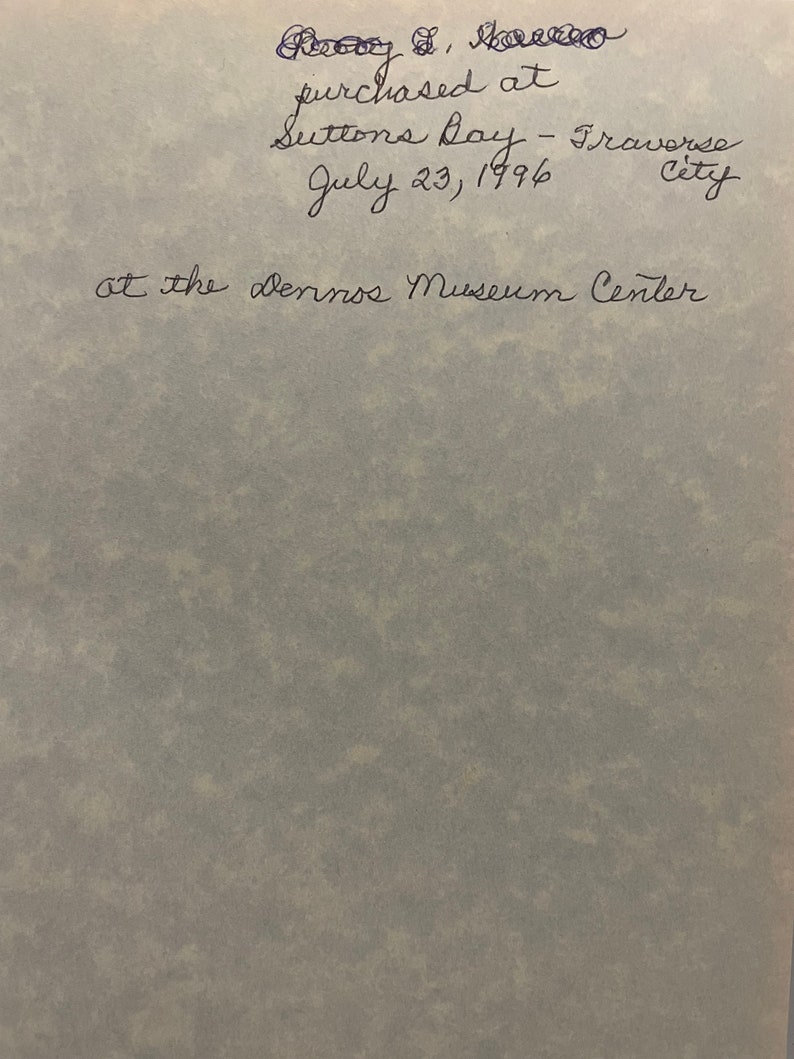 purchased at
Suttons Bay - Traverse
July 23, 1996 City
at the Dennos Museum Center